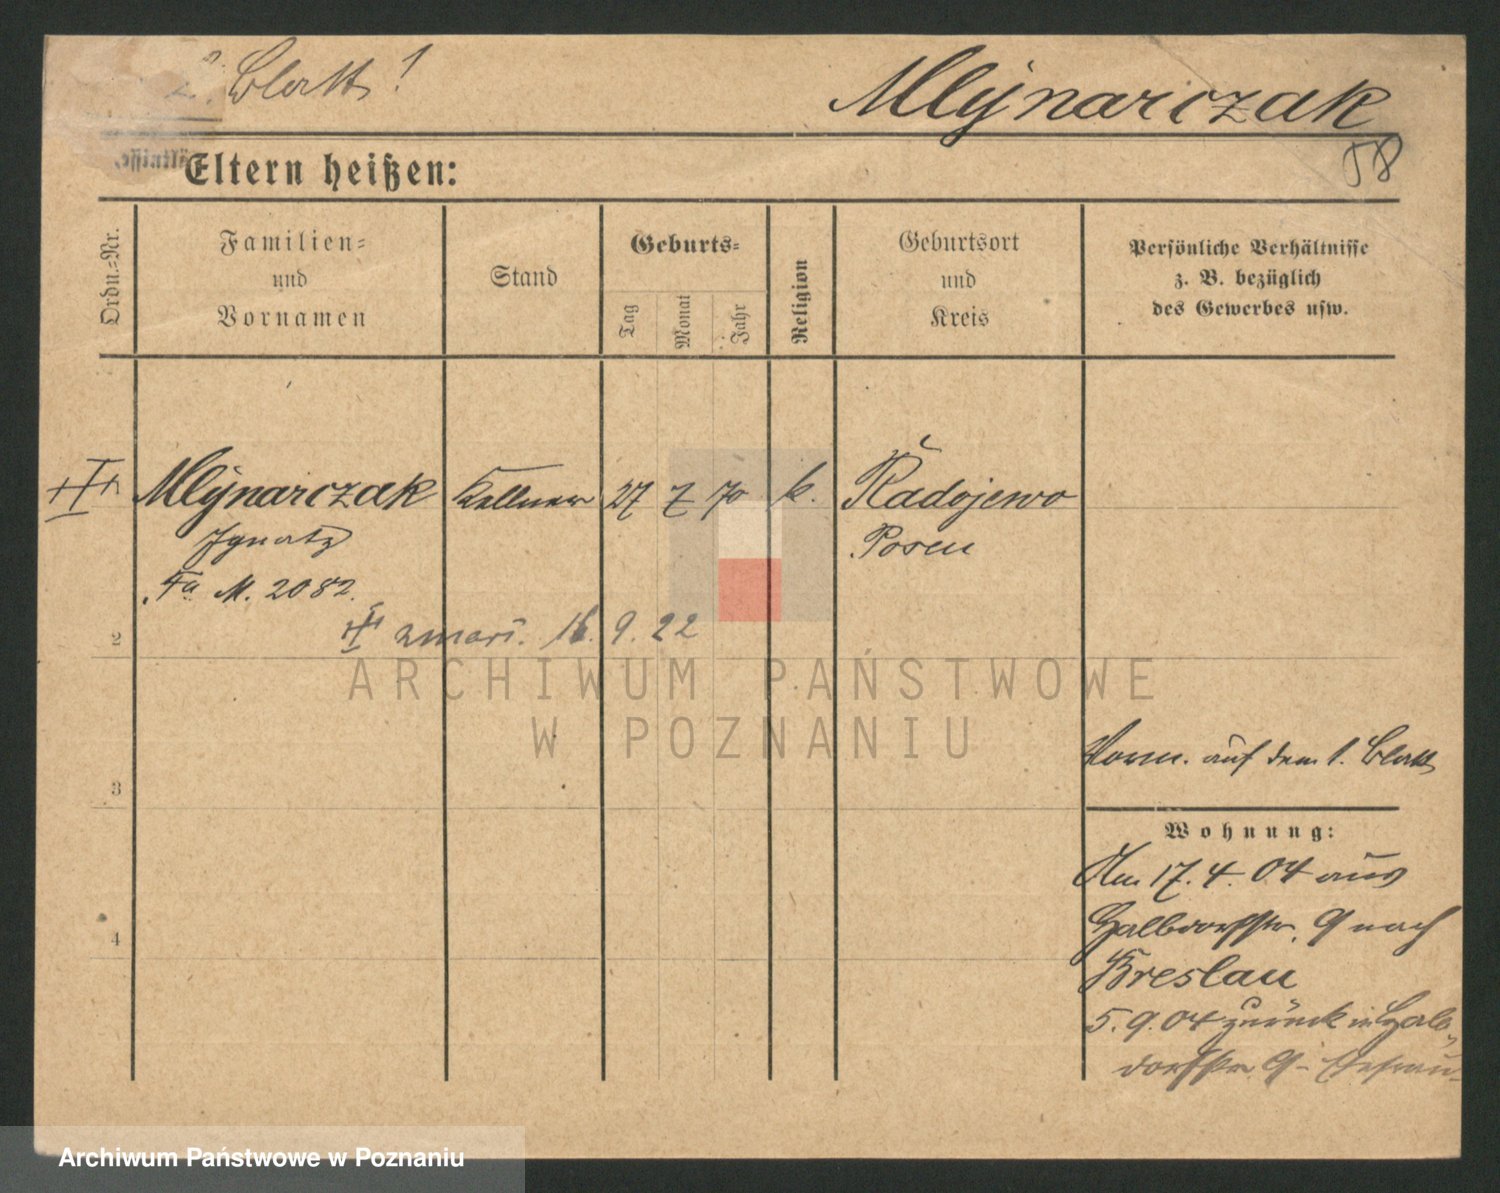 2. Blatt!
Mlynarczak
58
Eltern heißen:
Ordn.-Nr.
Familien-
und
Vornamen
Stand
Geburts-
Tag
Monat
Jahr
Religion
Geburtsort
und
Kreis
Persönliche Verhältnisse
z. B. bezüglich
des Gewerbes usw.
Mlynarczak Kellner 27 7 70 k. Radojewo
Ignatz Posen
Fa M. 2082.
2
zmarł. 16. 9. 22
ARCHIWUM PAŃSTWOWE
W POZNANIU
3
Verm. auf dem 1. Blatt
Wohnung:
Am 17. 4. 04 aus
Halbdorfstr. 9 nach
4
Breslau
5. 9. 04 zurück in Halb-
dorfstr 9 -
Archiwum Państwowe w Poznaniu